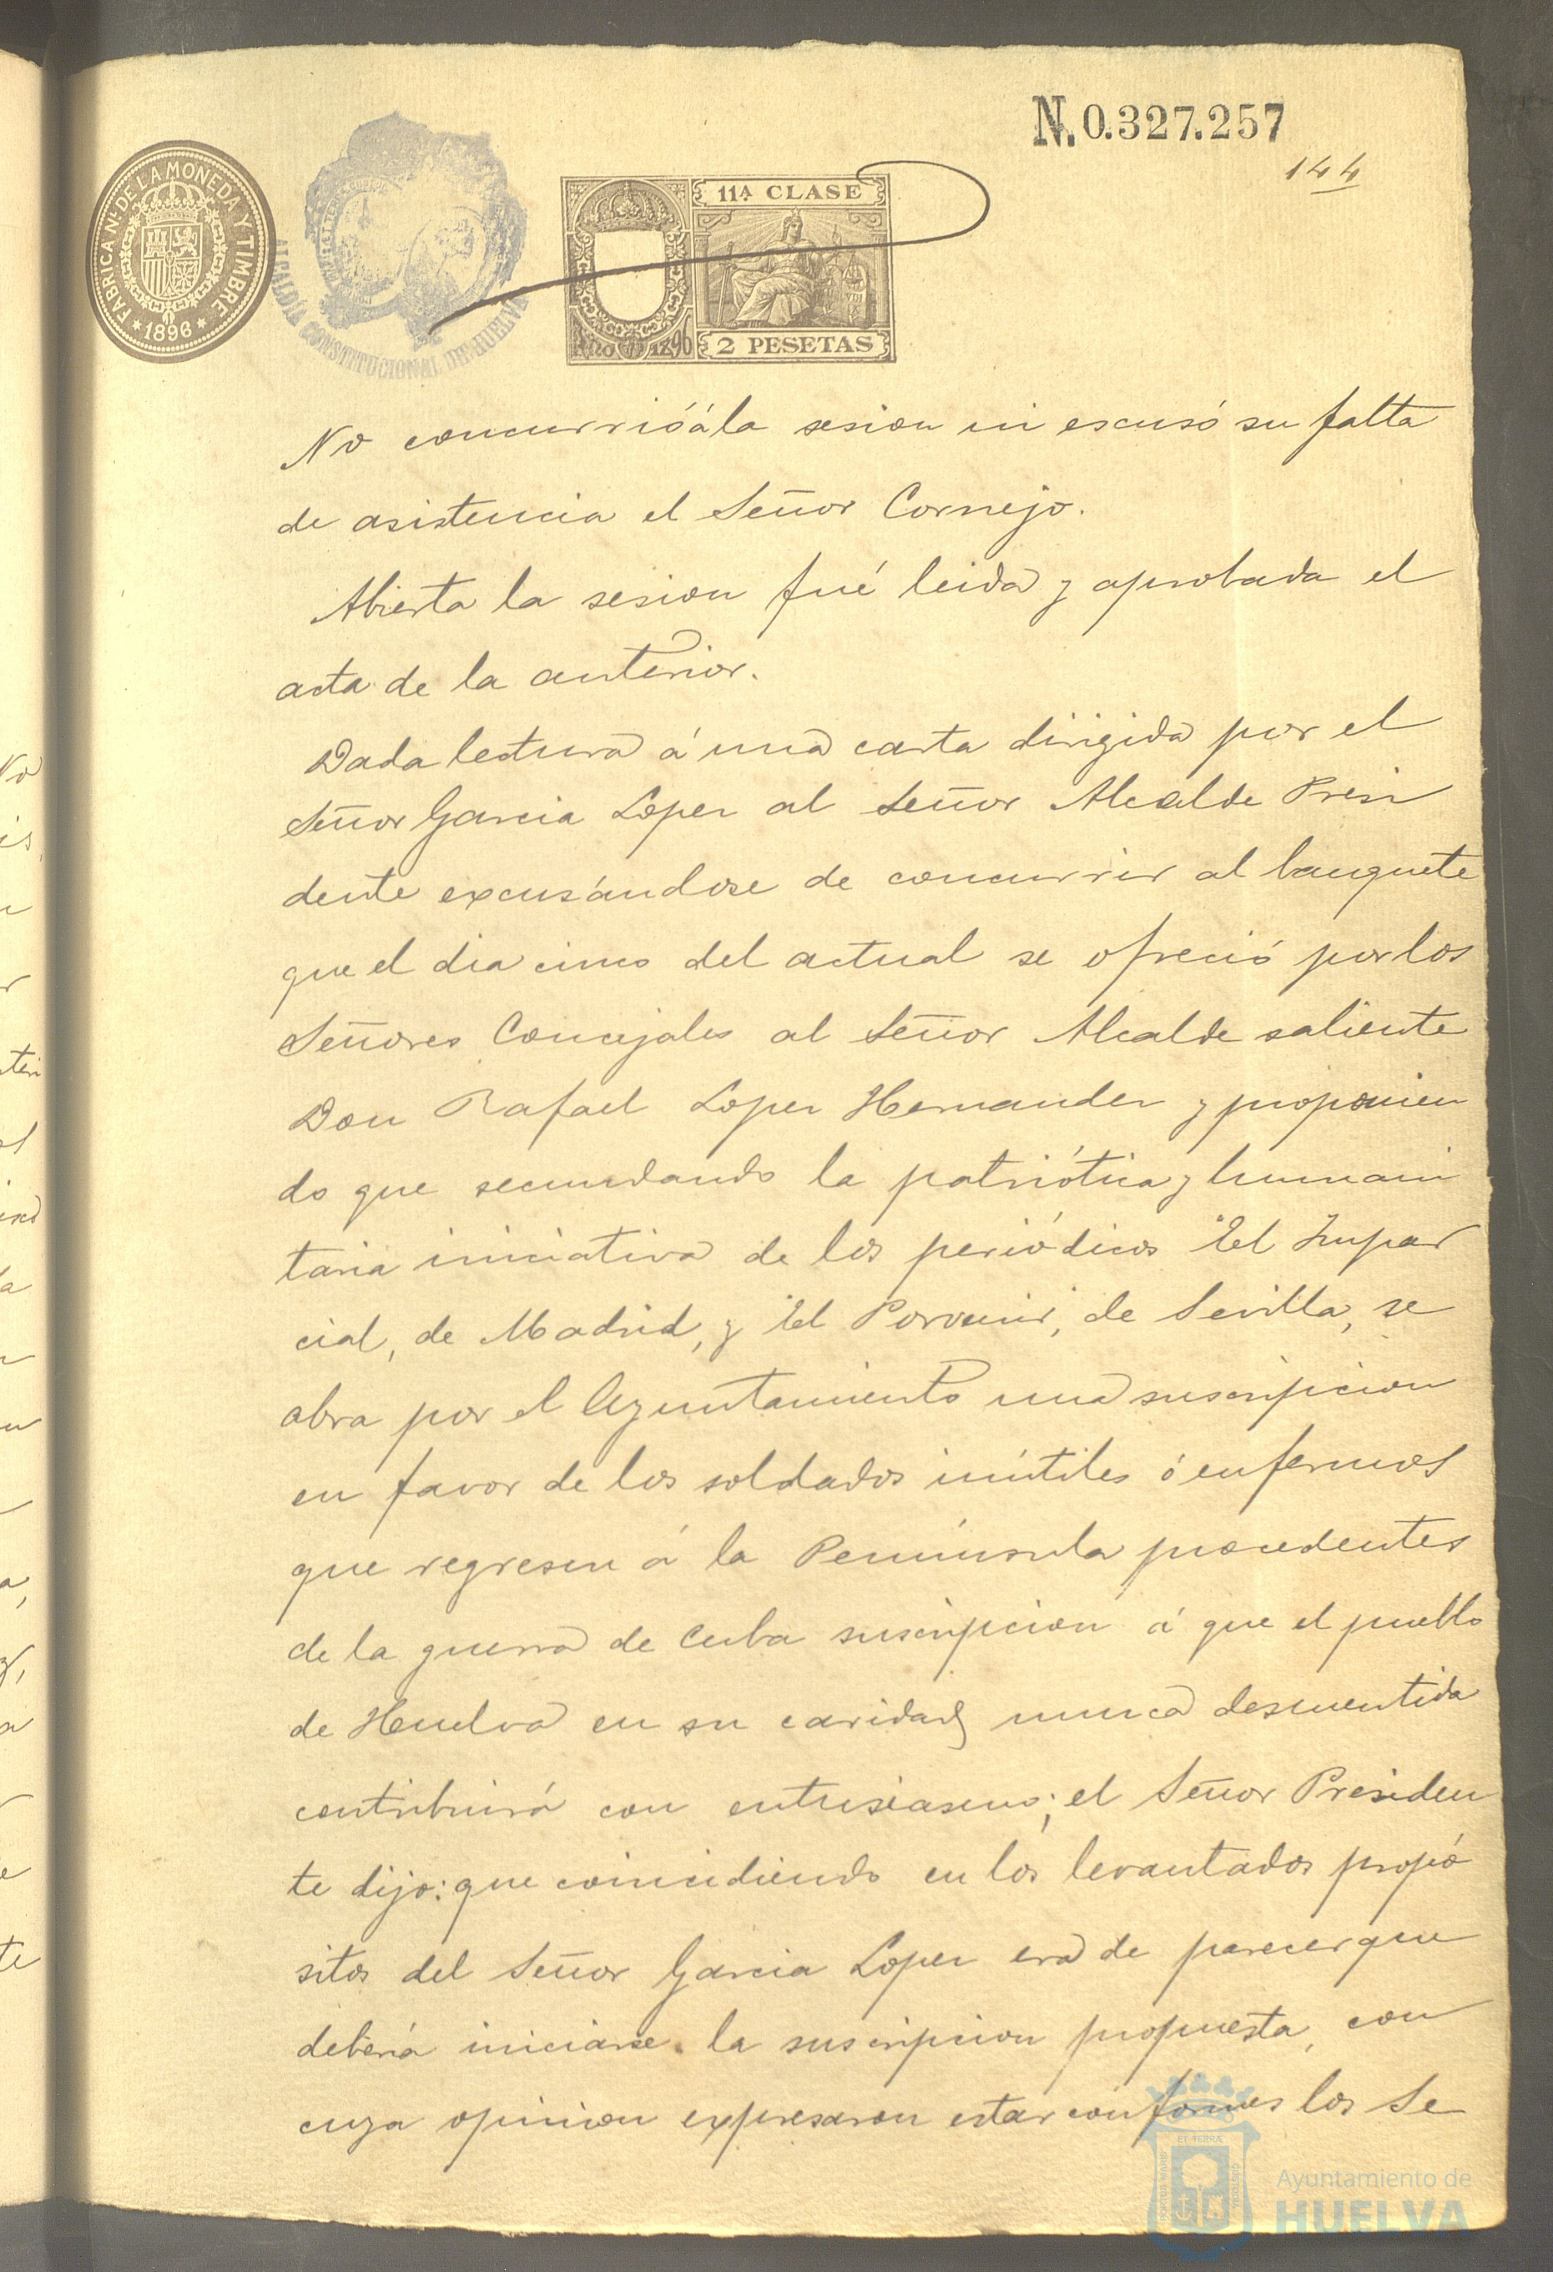 N. 0.327.257
144
FABRICA NL. DE LA MONEDA Y TIMBRE
* 1896 *
ALCALDÍA CONSTITUCIONAL DE HUELVA
11ª CLASE
AÑO DE 1896
2 PESETAS
No concurrió á la sesion ni escusó su falta
de asistencia el Señor Cornejo.
Abierta la sesion fué leida y aprobada el
acta de la anterior.
Dada lectura á una carta dirigida por el
Señor Garcia Lopez al Señor Alcalde Presi
dente excusándose de concurrir al banquete
que el dia cinco del actual se ofreció por los
Señores Concejales al Señor Alcalde saliente
Don Rafael Lopez Hernandez y proponien
do que secundando la patriótica y humani
taria iniciativa de los periódicos "El Impar
cial, de Madrid, y "El Porvenir, de Sevilla, se
abra por el Ayuntamiento una suscripcion
en favor de los soldados inútiles ó enfermos
que regresen á la Península procedentes
de la guerra de Cuba suscripcion á que el pueblo
de Huelva en su caridad nunca desmentida
contribuirá con entusiasmo; el Señor Presiden
te dijo: que coincidiendo en los levantados propó
sitos del Señor Garcia Lopez era de parecer que
debería iniciarse la suscripcion propuesta, con
cuya opinion expresaron estar conformes los Se
Ayuntamiento de
HUELVA